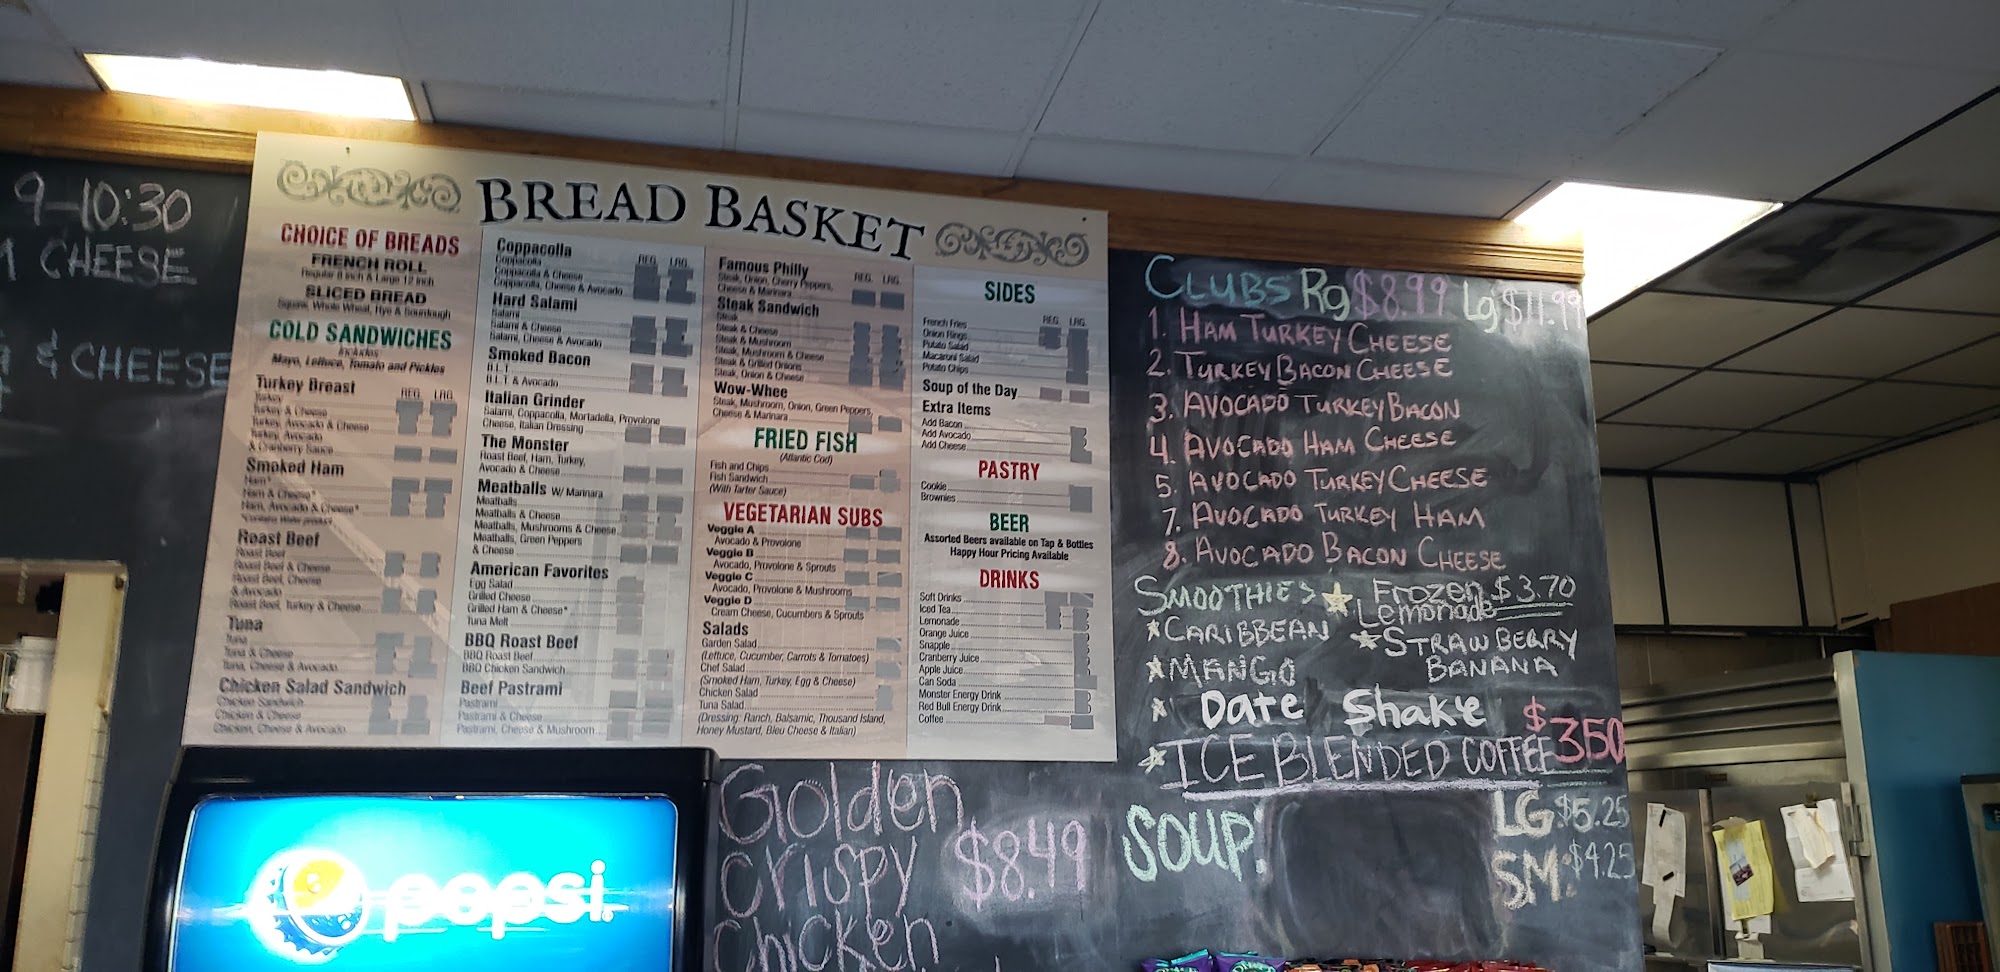 9-10:30
CHEESE
& CHEESE
BREAD BASKET
CHOICE OF BREADS
FRENCH ROLL
Regular 8 inch & Large 12 inch
SLICED BREAD
Squaw, Whole Wheat, Rye & Sourdough
COLD SANDWICHES
Includes:
Mayo, Lettuce, Tomato and Pickles
Turkey Breast REG. LRG.
Turkey
Turkey & Cheese
Turkey, Avocado & Cheese
Turkey, Avocado
& Cranberry Sauce
Smoked Ham
Ham*
Ham & Cheese*
Ham, Avocado & Cheese*
*Contains Water product
Roast Beef
Roast Beef
Roast Beef & Cheese
Roast Beef, Cheese
& Avocado
Roast Beef, Turkey & Cheese
Tuna
Tuna
Tuna & Cheese
Tuna, Cheese & Avocado
Chicken Salad Sandwich
Chicken Sandwich
Chicken & Cheese
Chicken, Cheese & Avocado
Coppacolla REG. LRG.
Coppacolla
Coppacolla & Cheese
Coppacolla, Cheese & Avocado
Hard Salami
Salami
Salami & Cheese
Salami, Cheese & Avocado
Smoked Bacon
B.L.T
B.L.T & Avocado
Italian Grinder
Salami, Coppacolla, Mortadella, Provolone
Cheese, Italian Dressing
The Monster
Roast Beef, Ham, Turkey,
Avocado & Cheese
Meatballs W/ Marinara
Meatballs
Meatballs & Cheese
Meatballs, Mushrooms & Cheese
Meatballs, Green Peppers
& Cheese
American Favorites
Egg Salad
Grilled Cheese
Grilled Ham & Cheese*
Tuna Melt
BBQ Roast Beef
BBQ Roast Beef
BBQ Chicken Sandwich
Beef Pastrami
Pastrami
Pastrami & Cheese
Pastrami, Cheese & Mushroom
Famous Philly REG. LRG.
Steak, Onion, Cherry Peppers,
Cheese & Marinara
Steak Sandwich
Steak
Steak & Cheese
Steak & Mushroom
Steak, Mushroom & Cheese
Steak & Grilled Onions
Steak, Onion & Cheese
Wow-Whee
Steak, Mushroom, Onion, Green Peppers,
Cheese & Marinara
FRIED FISH
(Atlantic Cod)
Fish and Chips
Fish Sandwich
(With Tarter Sauce)
VEGETARIAN SUBS
Veggie A
Avocado & Provolone
Veggie B
Avocado, Provolone & Sprouts
Veggie C
Avocado, Provolone & Mushrooms
Veggie D
Cream Cheese, Cucumbers & Sprouts
Salads
Garden Salad
(Lettuce, Cucumber, Carrots & Tomatoes)
Chef Salad
(Smoked Ham, Turkey, Egg & Cheese)
Chicken Salad
Tuna Salad
(Dressing: Ranch, Balsamic, Thousand Island,
Honey Mustard, Bleu Cheese & Italian)
SIDES
REG. LRG.
French Fries
Onion Rings
Potato Salad
Macaroni Salad
Potato Chips
Soup of the Day
Extra Items
Add Bacon
Add Avocado
Add Cheese
PASTRY
Cookie
Brownies
BEER
Assorted Beers available on Tap & Bottles
Happy Hour Pricing Available
DRINKS
Soft Drinks
Iced Tea
Lemonade
Orange Juice
Snapple
Cranberry Juice
Apple Juice
Can Soda
Monster Energy Drink
Red Bull Energy Drink
Coffee
CLUBS Rg $8.99 Lg $11.99
1. HAM TURKEY CHEESE
2. TURKEY BACON CHEESE
3. AVOCADO TURKEY BACON
4. AVOCADO HAM CHEESE
5. AVOCADO TURKEY CHEESE
7. AVOCADO TURKEY HAM
8. AVOCADO BACON CHEESE
SMOOTHIES Frozen $3.70
Lemonade
CARIBBEAN STRAWBERRY
MANGO BANANA
Date Shake
ICE BLENDED COFFEE $350
SOUP: LG: $5.25
SM: $4.25
Golden
Crispy $8.49
Chicken
pepsi